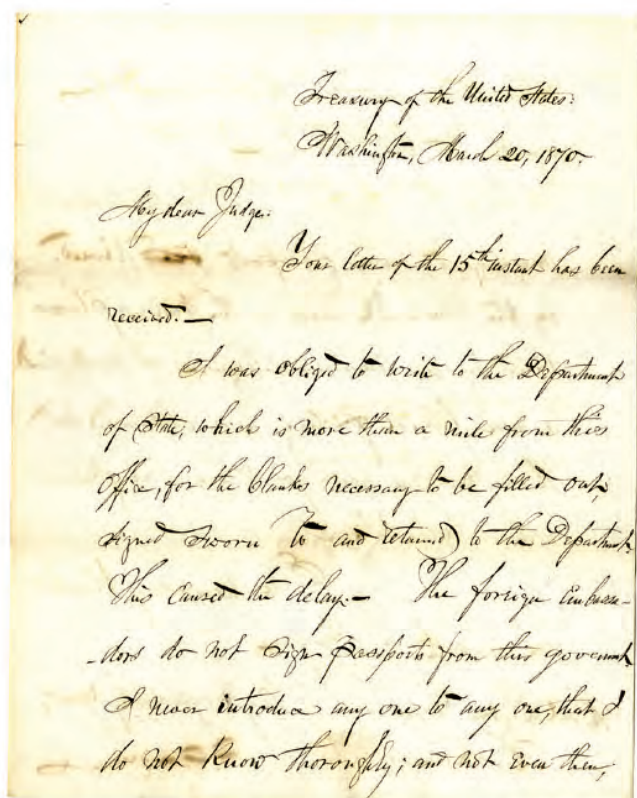 Treasury of the United States:
Washington, March 20, 1870.
My dear Judge:
Your letter of the 15th instant has been
received.—
I was obliged to write to the Department
of State, which is more than a mile from this
office, for the blanks necessary to be filled out,
signed sworn to and returned) to the Department.
This caused the delay.— The foreign Embassa-
-dors do not sign passports from this government.
I never introduce any one to any one, that I
do not know thoroughly; and not even then,